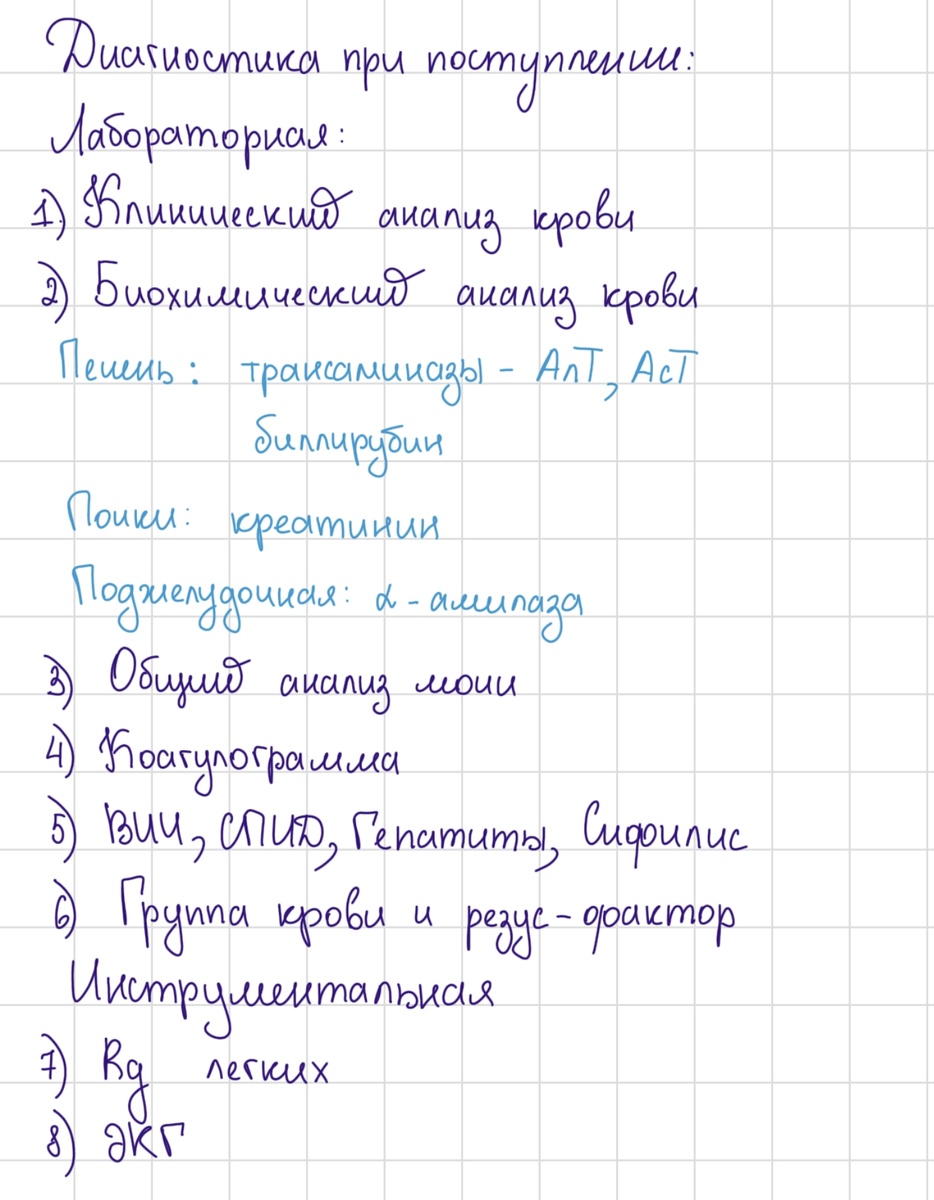 Диагностика при поступлении:
Лабораторная:
1) Клинический анализ крови
2) Биохимический анализ крови
Печень: трансаминазы - АлТ, АсТ
биллирубин
Почки: креатинин
Поджелудочная: α - амилаза
3) Общий анализ мочи
4) Коагулограмма
5) ВИЧ, СПИД, Гепатиты, Сифилис
6) Группа крови и резус-фактор
Инструментальная
7) Rg легких
8) ЭКГ